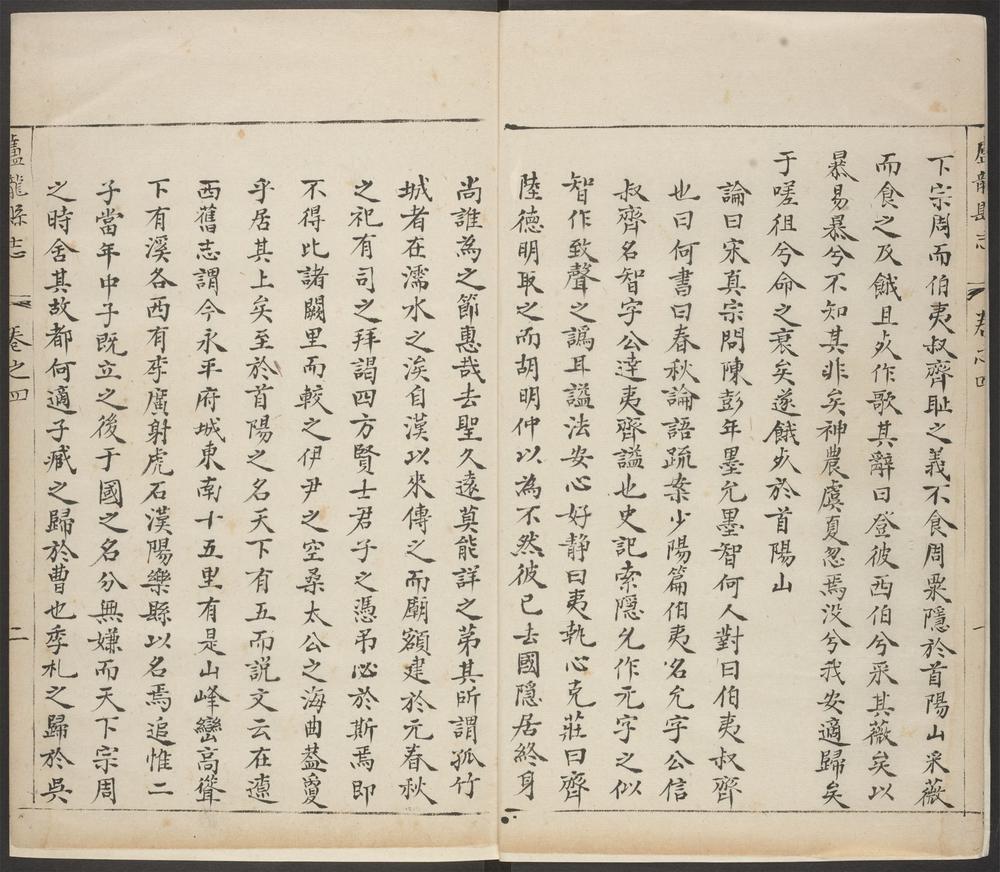 盧龍縣志 卷之四 一
下宗周而伯夷叔齊恥之義不食周粟隱於首陽山采薇
而食之及餓且死作歌其辭曰登彼西伯兮采其薇矣以
暴易暴兮不知其非矣神農虞夏忽焉没兮我安適歸矣
于嗟徂兮命之衰矣遂餓死於首陽山
論曰宋真宗問陳彭年墨允墨智何人對曰伯夷叔齊
也曰何書曰春秋論語疏案少陽篇伯夷名允字公信
叔齊名智字公達夷齊謚也史記索隱允作元字之似
智作致聲之譌耳謚法安心好静曰夷執心克莊曰齊
陸德明取之而胡明仲以為不然彼已去國隱居終身
尚誰為之節惠哉去聖久遠莫能詳之第其所謂孤竹
城者在濡水之涘自漢以來傳之而廟額建於元春秋
之祀有司之拜謁四方賢士君子之憑吊必於斯焉即
不得比諸闕里而較之伊尹之空桑太公之海曲葢夐
乎居其上矣至於首陽之名天下有五而說文云在遼
西舊志謂今永平府城東南十五里有是山峰巒高聳
下有溪各西有李廣射虎石漢陽樂縣以名焉追惟二
子當年中子既立之後于國之名分無嫌而天下宗周
之時舍其故都何適子臧之歸於曹也季札之歸於吳
盧龍縣志 卷之四 二